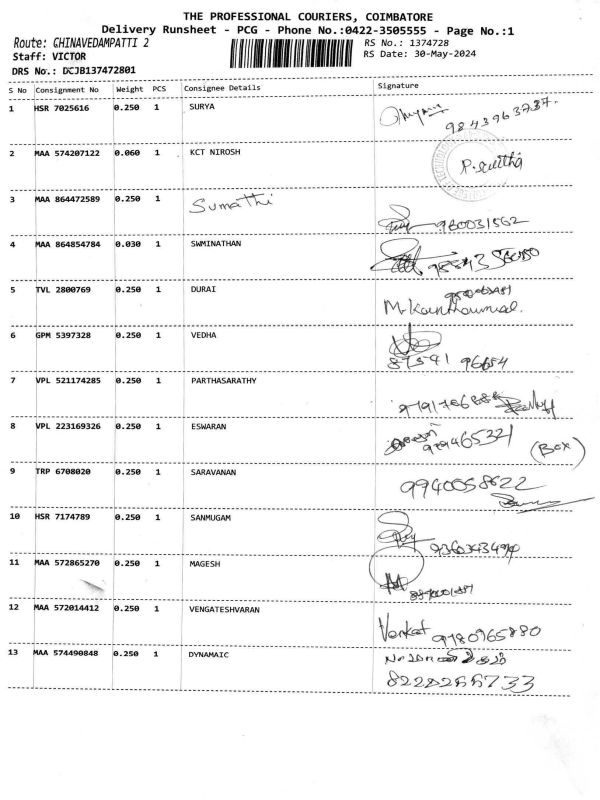 THE PROFESSIONAL COURIERS, COIMBATORE
Delivery Runsheet - PCG - Phone No.:0422-3505555 - Page No.:1
Route: CHINAVEDAMPATTI 2
RS No.: 1374728
Staff: VICTOR
RS Date: 30-May-2024
DRS No.: DCJB137472801
S No Consignment No Weight PCS Consignee Details Signature
1 HSR 7025616 0.250 1 SURYA
2 MAA 574207122 0.060 1 KCT NIROSH
3 MAA 864472589 0.250 1 Sumathi 980031562
4 MAA 864854784 0.030 1 SWMINATHAN
5 TVL 2800769 0.250 1 DURAI
6 GPM 5397328 0.250 1 VEDHA
87541 96654
7 VPL 521174285 0.250 1 PARTHASARATHY
8 VPL 223169326 0.250 1 ESWARAN
(Box)
9 TRP 6708020 0.250 1 SARAVANAN
9940058622
10 HSR 7174789 0.250 1 SANMUGAM
11 MAA 572865270 0.250 1 MAGESH
12 MAA 572014412 0.250 1 VENGATESHVARAN
Venkat 9780965880
13 MAA 574490848 0.250 1 DYNAMAIC
8220266733